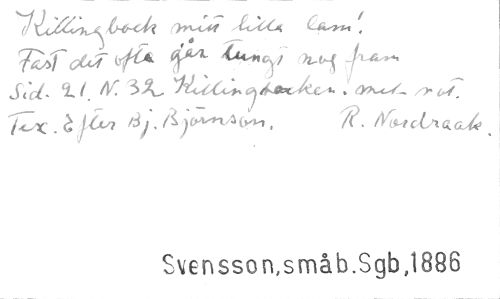 Killingbock mitt lilla lam!
Fast det ofta går tungt nog fram
Sid. 21. N. 32 Killingbocken. mel. not.
Tex. Efter Bj. Björnson. R. Nordraak.
Svensson,småb.Sgb,1886